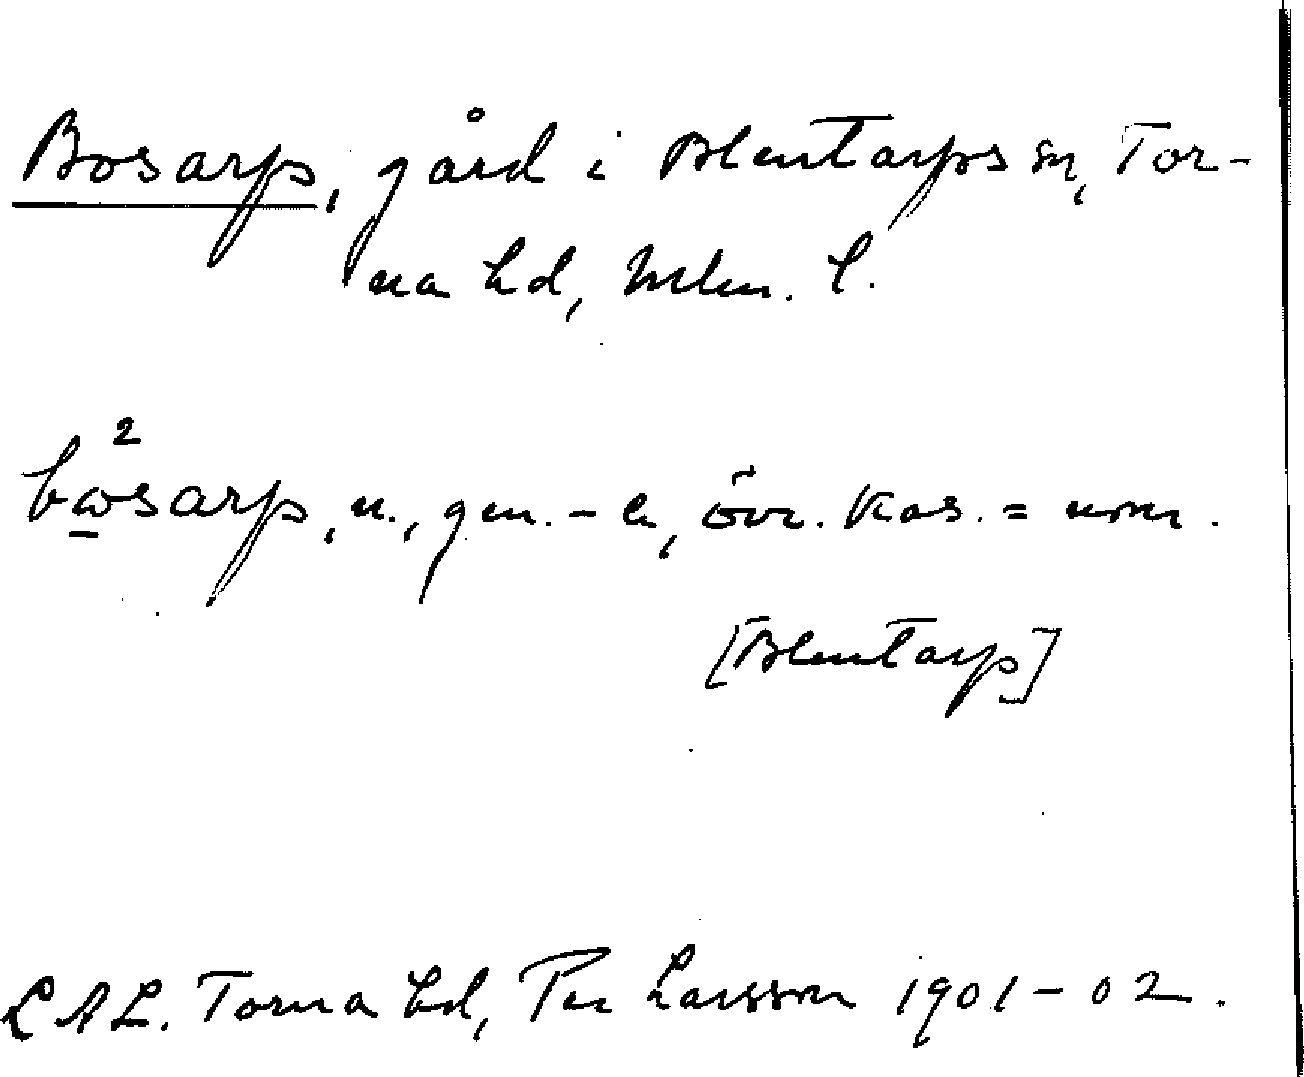 Bosarp, gård i Blentarps sn, Tor-
na hd, Mlm. l.
bω̱²sarp, n., gen. -e, övr. kas. = nom.
[Blentarp]
LAL. Torna hd, Per Larsson 1901-02.